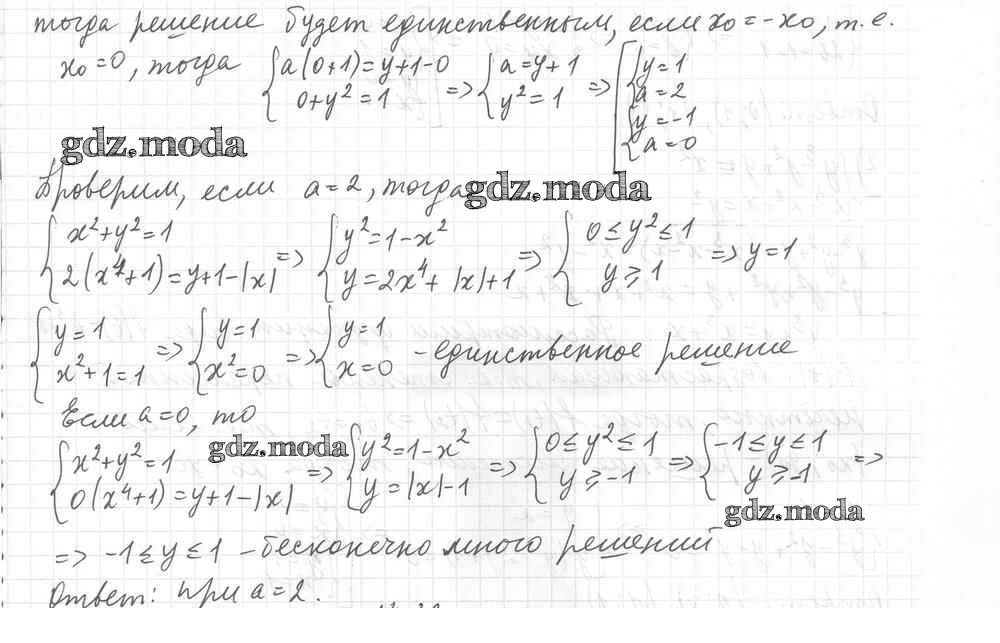 тогда решение будет единственным, если x₀ = -x₀, т.е.
x₀ = 0, тогда { a(0+1) = y+1-0 ; 0+y² = 1 => { a = y+1 ; y² = 1 => [ { y = 1 ; a = 2 { y = -1 ; a = 0
gdz.moda
Проверим, если a = 2, тогда
gdz.moda
{ x²+y² = 1 ; 2(x⁴+1) = y+1-|x| => { y² = 1-x² ; y = 2x⁴+|x|+1 => { 0 ≤ y² ≤ 1 ; y ≥ 1 => y = 1
{ y = 1 ; x²+1 = 1 => { y = 1 ; x² = 0 => { y = 1 ; x = 0 - единственное решение
Если a = 0, то
gdz.moda
{ x²+y² = 1 ; 0(x⁴+1) = y+1-|x| => { y² = 1-x² ; y = |x|-1 => { 0 ≤ y² ≤ 1 ; y ≥ -1 => { -1 ≤ y ≤ 1 ; y ≥ -1 =>
gdz.moda
=> -1 ≤ y ≤ 1 - бесконечно много решений
Ответ: при a = 2.